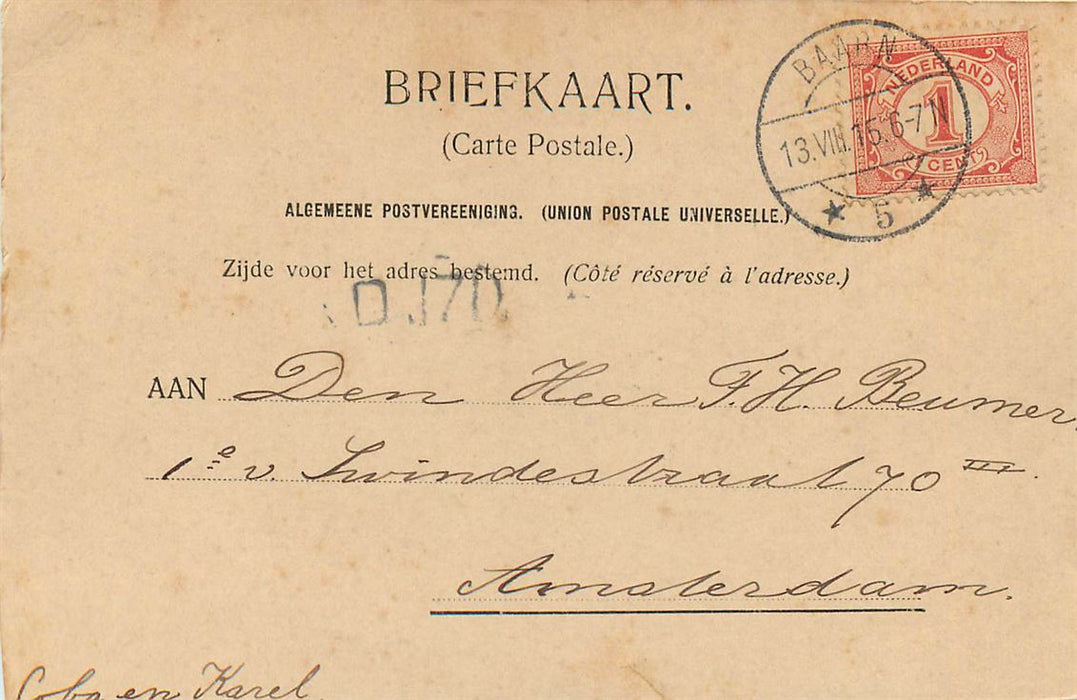 BRIEFKAART.
(Carte Postale.)
ALGEMEENE POSTVEREENIGING. (UNION POSTALE UNIVERSELLE.)
Zijde voor het adres bestemd. (Côté réservé à l'adresse.)
BAARN
13.VIII.15.6-7N
5
NEDERLAND
1
CENT
D 170
AAN Den Heer F.H. Beumer.
1e v. Swindestraat 70 III.
Amsterdam.
Coba en Karel.